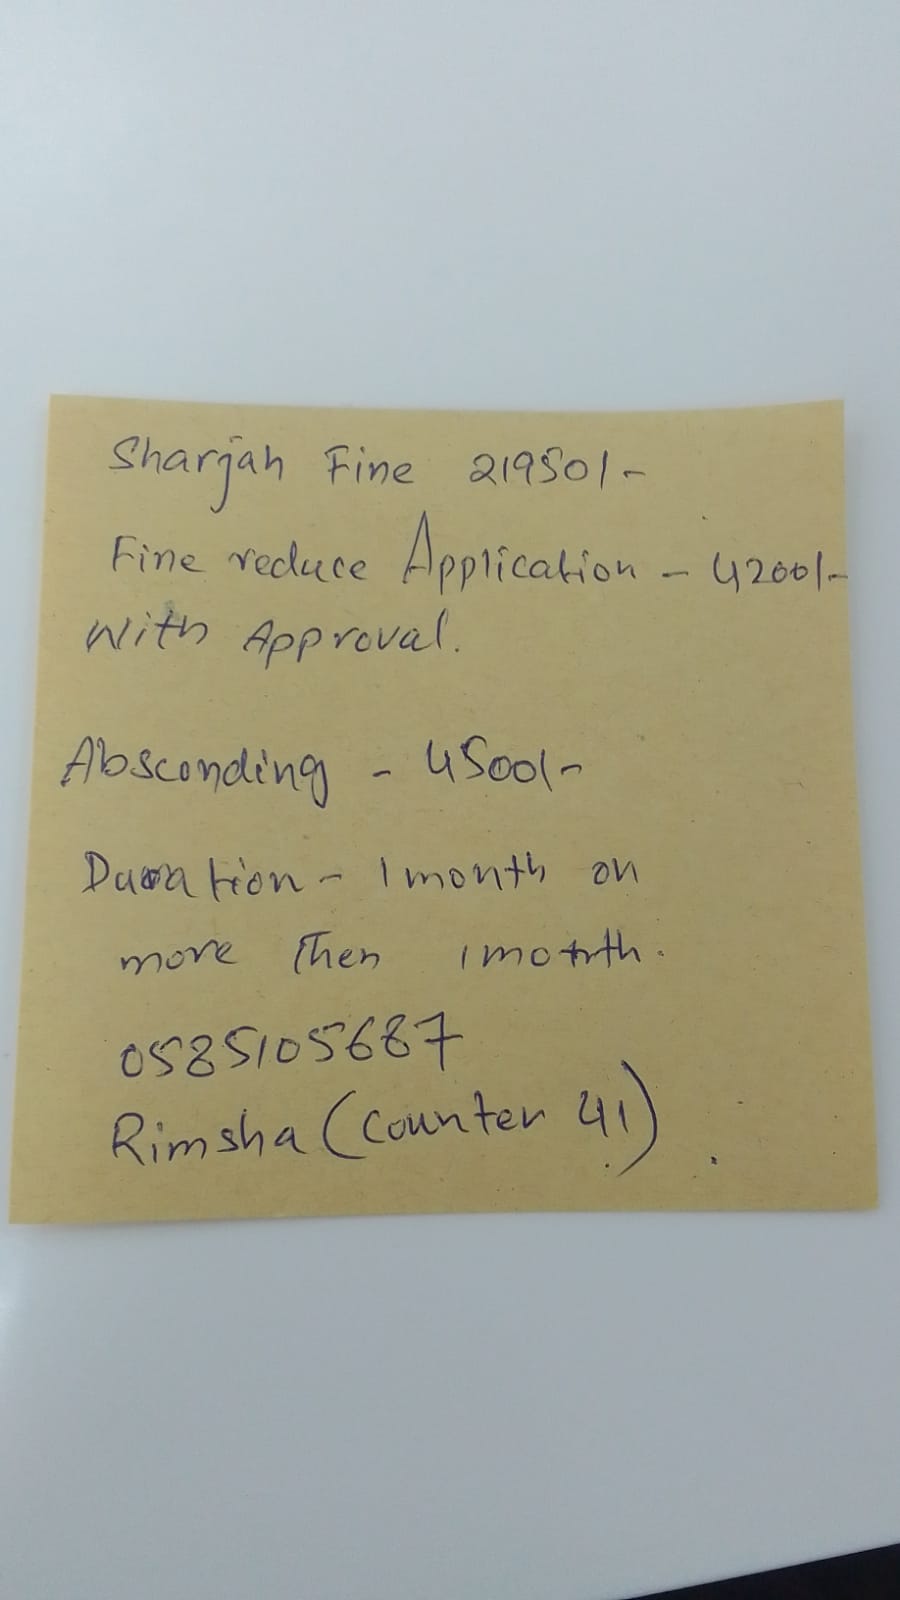 Sharjah Fine 21950/-
Fine reduce Application - 4200/-
With Approval.
Absconding - 4500/-
Duration - 1 month on
more then 1 month.
0585105687
Rimsha (Counter 41)